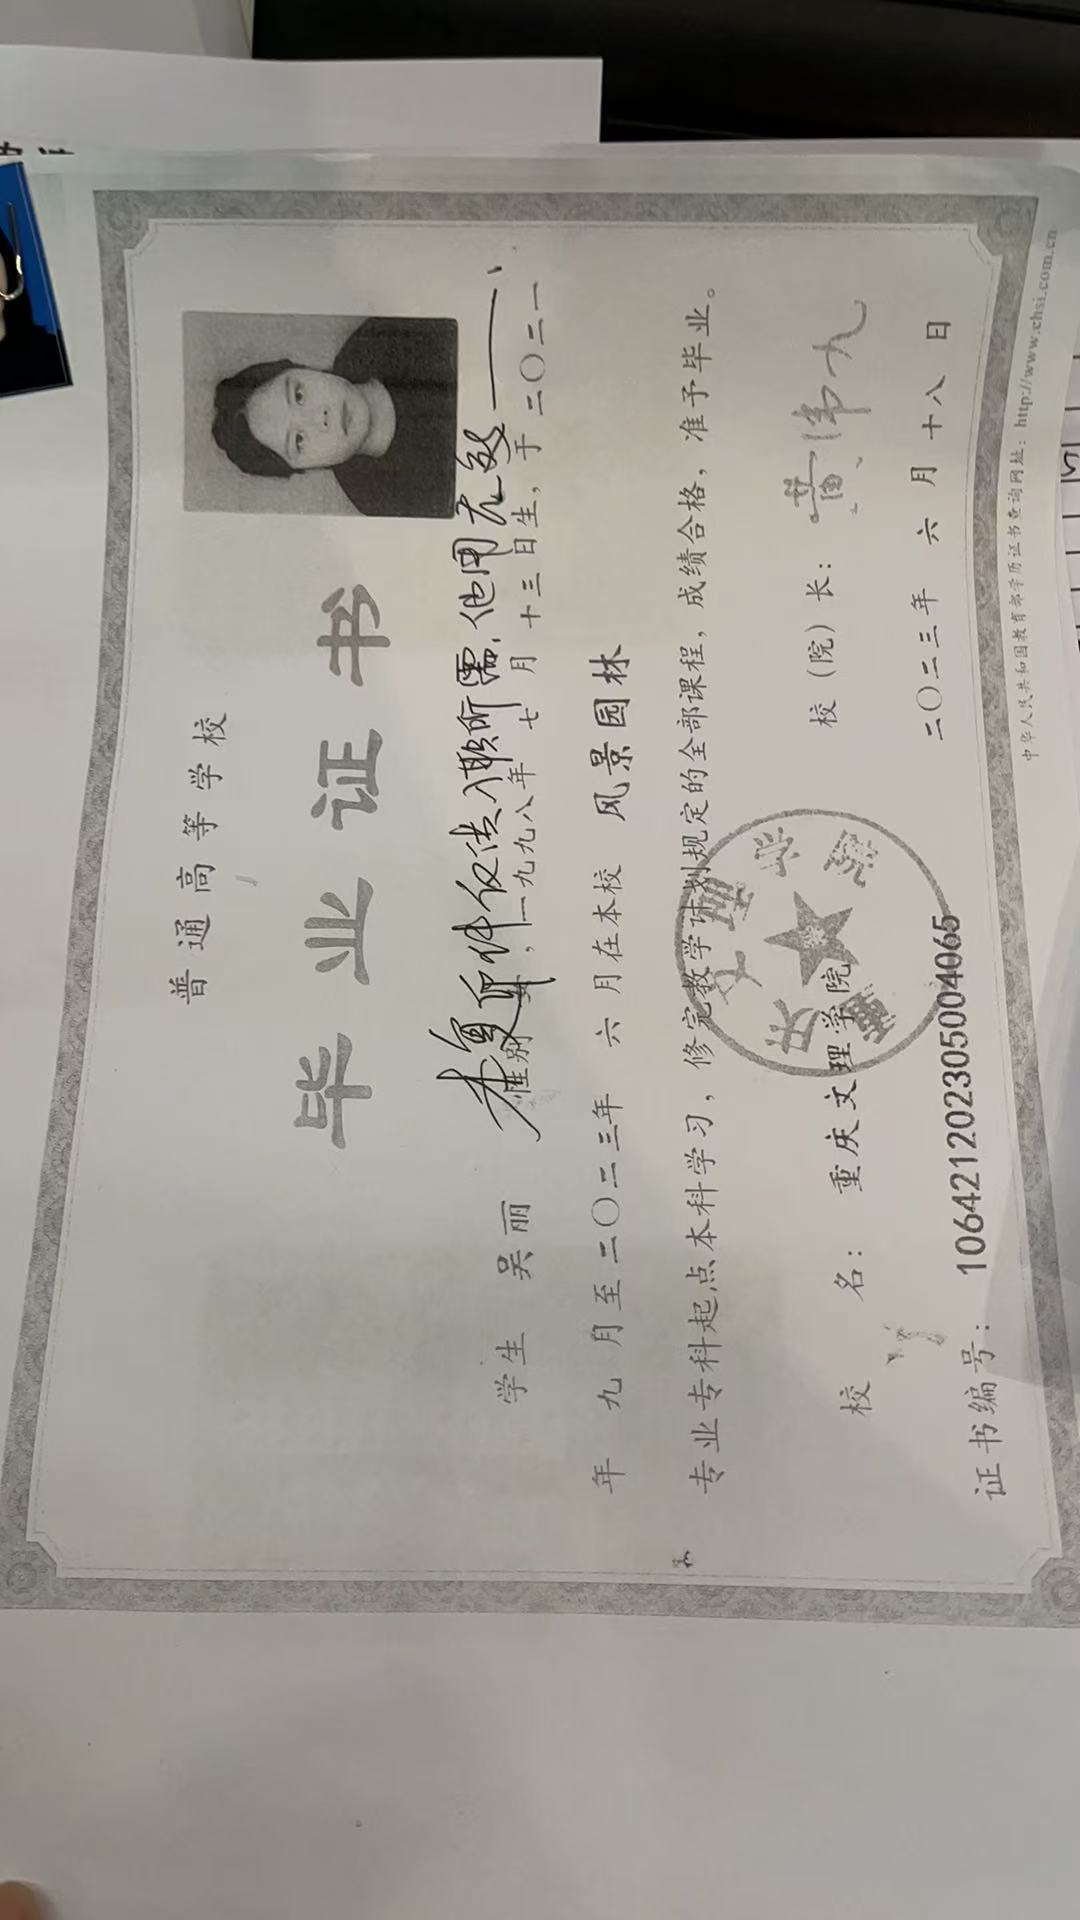 普通高等学校
毕业证书
本复印件仅供入职所需,他用无效
学生 吴丽 性别 ,一九九八年 七 月 十三 日生,于 二〇二一
年 九 月至 二〇二三年 六 月在本校 风景园林
专业 专科起点本科学习,修完教学计划规定的全部课程,成绩合格,准予毕业。
校 名: 重庆文理学院 校(院)长:
重庆文理学院
二〇二三年 六 月 十八 日
证书编号: 106421202305004065
中华人民共和国教育部学历证书查询网址:http://www.chsi.com.cn